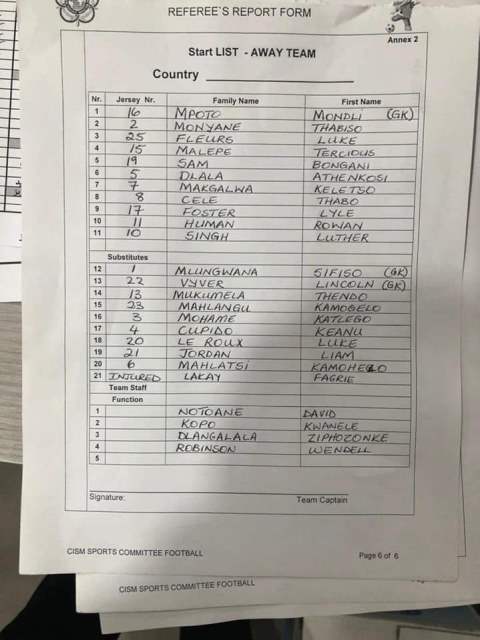 REFEREE'S REPORT FORM
Annex 2
Start LIST - AWAY TEAM
Country
Nr. Jersey Nr. Family Name First Name
1 16 MPOTO MONDLI (GK)
2 2 MONYANE THABISO
3 25 FLEURS LUKE
4 15 MALEPE TERCIOUS
5 19 SAM BONGANI
6 5 DLALA ATHENKOSI
7 7 MAKGALWA KELETSO
8 8 CELE THABO
9 17 FOSTER LYLE
10 11 HUMAN ROWAN
11 10 SINGH LUTHER
Substitutes
12 1 MLUNGWANA SIFISO (GK)
13 22 VYVER LINCOLN (GK)
14 13 MUKUMELA THENDO
15 23 MAHLANGU KAMOGELO
16 3 MOHAME KATLEGO
17 4 CUPIDO KEANU
18 20 LE ROUX LUKE
19 21 JORDAN LIAM
20 6 MAHLATSI KAMOHELO
21 INJURED LAKAY FAGRIE
Team Staff
Function
1 NOTOANE DAVID
2 KOPO KWANELE
3 DLANGALALA ZIPHOZONKE
4 ROBINSON WENDELL
5
Signature: Team Captain
CISM SPORTS COMMITTEE FOOTBALL Page 6 of 6
CISM SPORTS COMMITTEE FOOTBALL